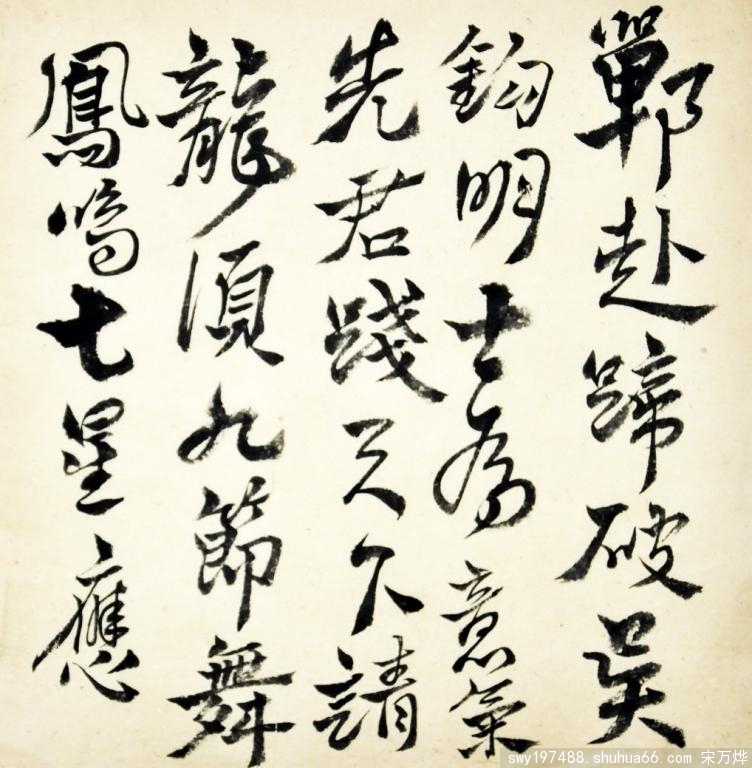 鄲赴蹄破吴
鈎明士為意氣
先君踐天下請
龍須九節舞
鳳鳴七星應
swy197488.shuhua66.com 宋万烨